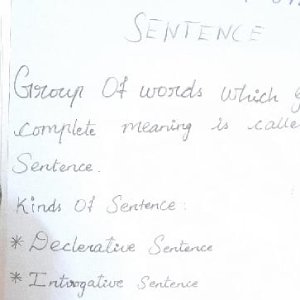 SENTENCE
Group Of words which
complete meaning is calle
Sentence.
Kinds Of Sentence:
* Declerative Sentence
* Intrrogative Sentence